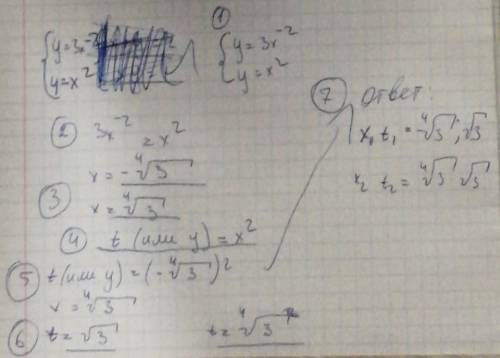 {y=3x⁻²
{y=x²
① {y=3x⁻²
{y=x²
② 3x⁻² = x²
x = -⁴√3
③ x = ⁴√3
④ t (или y) = x²
⑤ t (или y) = (-⁴√3)²
x = ⁴√3
⑥ t = √3
t = ⁴√3
⑦ ответ:
x₁ t₁ = -⁴√3; √3
x₂ t₂ = ⁴√3 √3